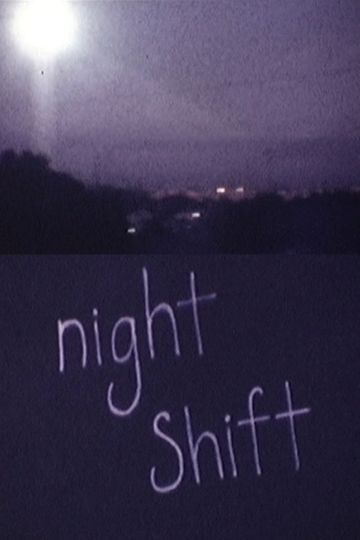 night
Shift